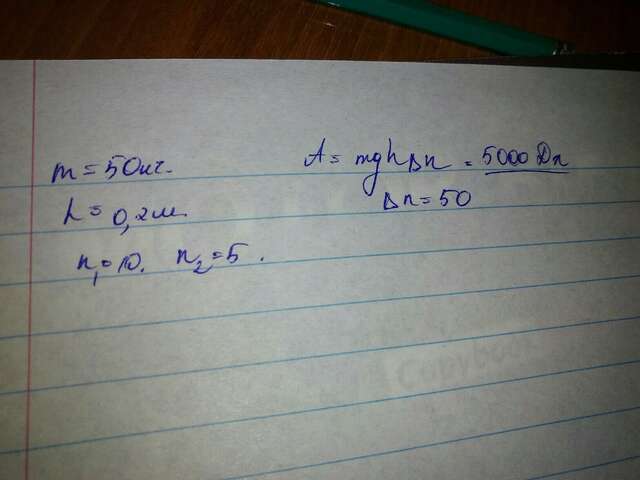 m = 50 кг.
h = 0,2 м.
n₁ = 10. n₂ = 5.
A = mgh Δn = 5000 Дж
Δn = 50